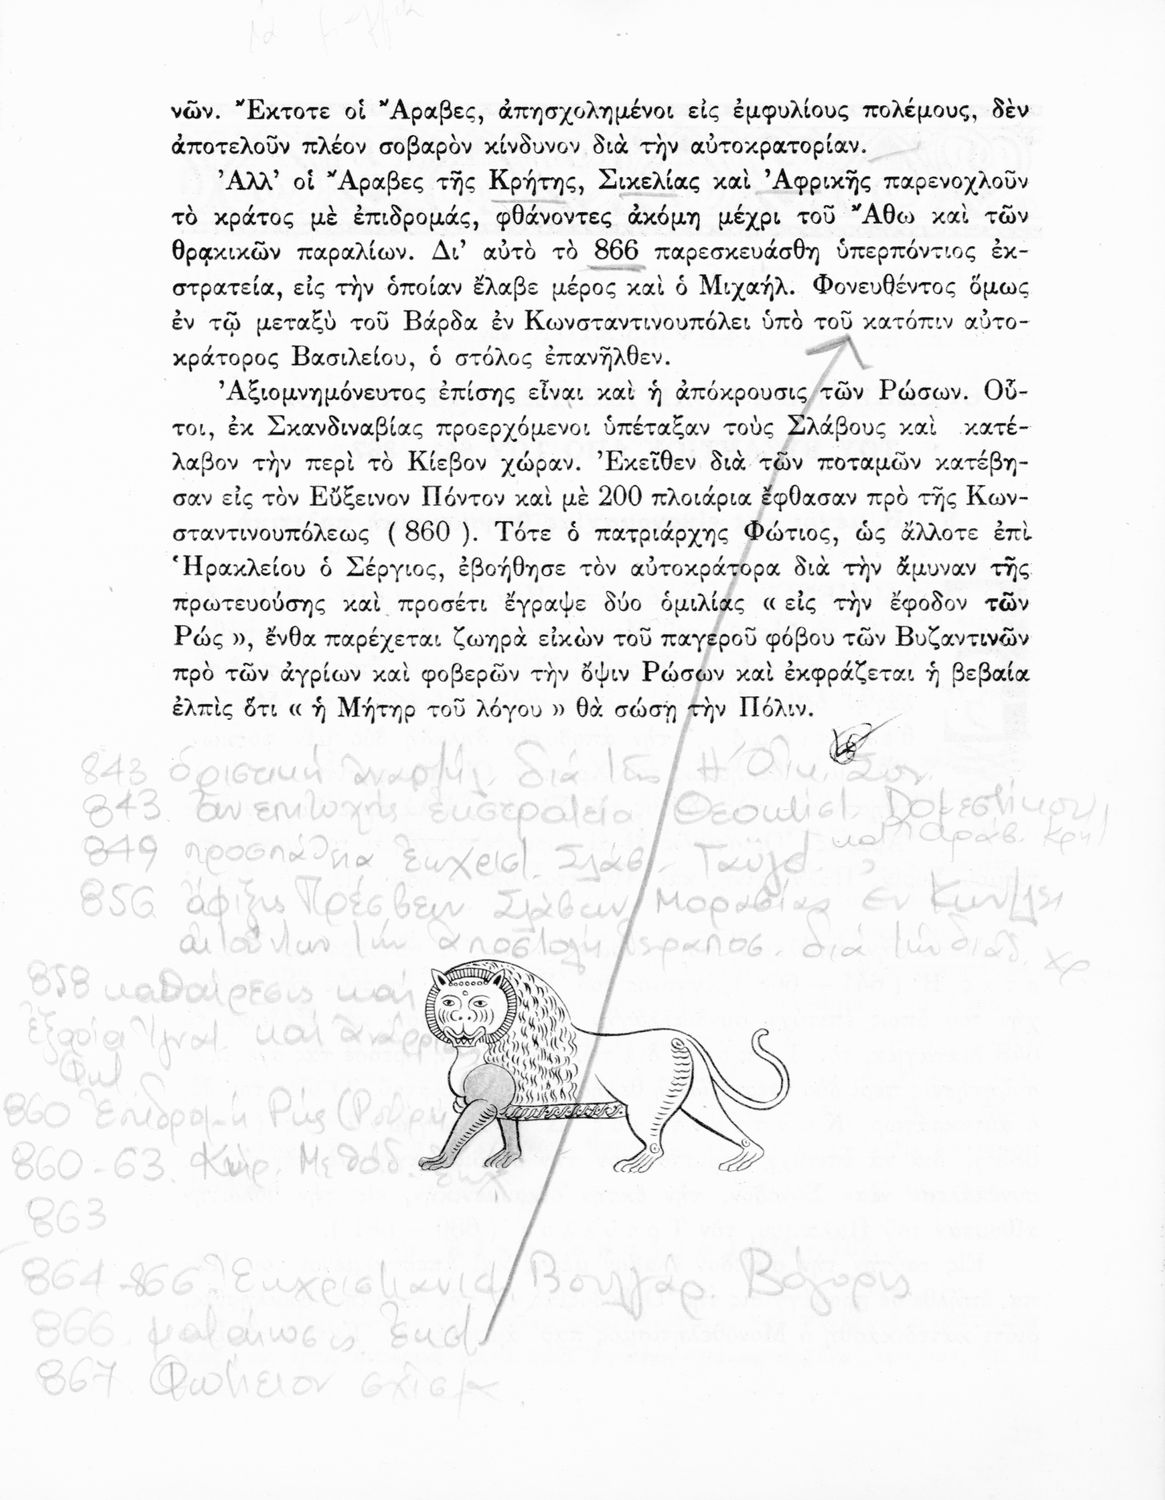 νῶν. Ἔκτοτε οἱ Ἄραβες, ἀπησχολημένοι εἰς ἐμφυλίους πολέμους, δὲν
ἀποτελοῦν πλέον σοβαρὸν κίνδυνον διὰ τὴν αὐτοκρατορίαν.
Ἀλλ’ οἱ Ἄραβες τῆς Κρήτης, Σικελίας καὶ Ἀφρικῆς παρενοχλοῦν
τὸ κράτος μὲ ἐπιδρομάς, φθάνοντες ἀκόμη μέχρι τοῦ Ἄθω καὶ τῶν
θρᾳκικῶν παραλίων. Δι’ αὐτὸ τὸ 866 παρεσκευάσθη ὑπερπόντιος ἐκ-
στρατεία, εἰς τὴν ὁποίαν ἔλαβε μέρος καὶ ὁ Μιχαήλ. Φονευθέντος ὅμως
ἐν τῷ μεταξὺ τοῦ Βάρδα ἐν Κωνσταντινουπόλει ὑπὸ τοῦ κατόπιν αὐτο-
κράτορος Βασιλείου, ὁ στόλος ἐπανῆλθεν.
Ἀξιομνημόνευτος ἐπίσης εἶναι καὶ ἡ ἀπόκρουσις τῶν Ρώσων. Οὗ-
τοι, ἐκ Σκανδιναβίας προερχόμενοι ὑπέταξαν τοὺς Σλάβους καὶ κατέ-
λαβον τὴν περὶ τὸ Κίεβον χώραν. Ἐκεῖθεν διὰ τῶν ποταμῶν κατέβη-
σαν εἰς τὸν Εὔξεινον Πόντον καὶ μὲ 200 πλοιάρια ἔφθασαν πρὸ τῆς Κων-
σταντινουπόλεως ( 860 ). Τότε ὁ πατριάρχης Φώτιος, ὡς ἄλλοτε ἐπὶ
Ἡρακλείου ὁ Σέργιος, ἐβοήθησε τὸν αὐτοκράτορα διὰ τὴν ἄμυναν τῆς
πρωτευούσης καὶ προσέτι ἔγραψε δύο ὁμιλίας « εἰς τὴν ἔφοδον τῶν
Ρώς », ἔνθα παρέχεται ζωηρὰ εἰκὼν τοῦ παγεροῦ φόβου τῶν Βυζαντινῶν
πρὸ τῶν ἀγρίων καὶ φοβερῶν τὴν ὄψιν Ρώσων καὶ ἐκφράζεται ἡ βεβαία
ἐλπὶς ὅτι « ἡ Μήτηρ τοῦ λόγου » θὰ σώσῃ τὴν Πόλιν.
843 ὁριστική διά τῆς Οἰκ. Συν.
843 ἀνεπιτυχής ἐκστρατεία Θεοκτίστ. Δομεστίκου
κατ' Ἀράβ. Κρή
849 προσπάθεια ἐκχριστ. Σλάβ. Ταϋγ
856 ἄφιξις Πρέσβεων Σλάβων Μοραβίας ἐν Κων/λει
τήν ἀποστολή ἱεραποσ. διά τήν διαδ. χρ
858 καθαίρεσις καί
ἐξορία Ἰγνατ. καί
Φωτ
860 Ἐπιδρομή Ρώς
860-63 Κυρ. Μεθόδ.
863
864-866 Ἐκχριστιανισ Βουλγάρ. Βόγορις
866 ματαίωσις ἐκστ
867 Φωτίειον σχίσμα